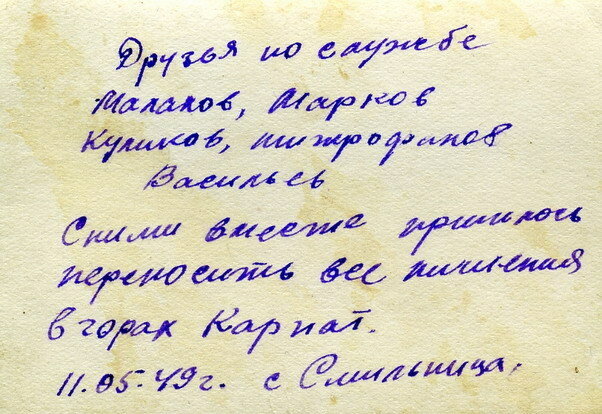 Друзья по службе
Малахов, Марков
Куликов, Митрофанов
Васильев
Сними вместе пришлось
переносить все
в горах Карпат.
11.05-49г. с Смильница.